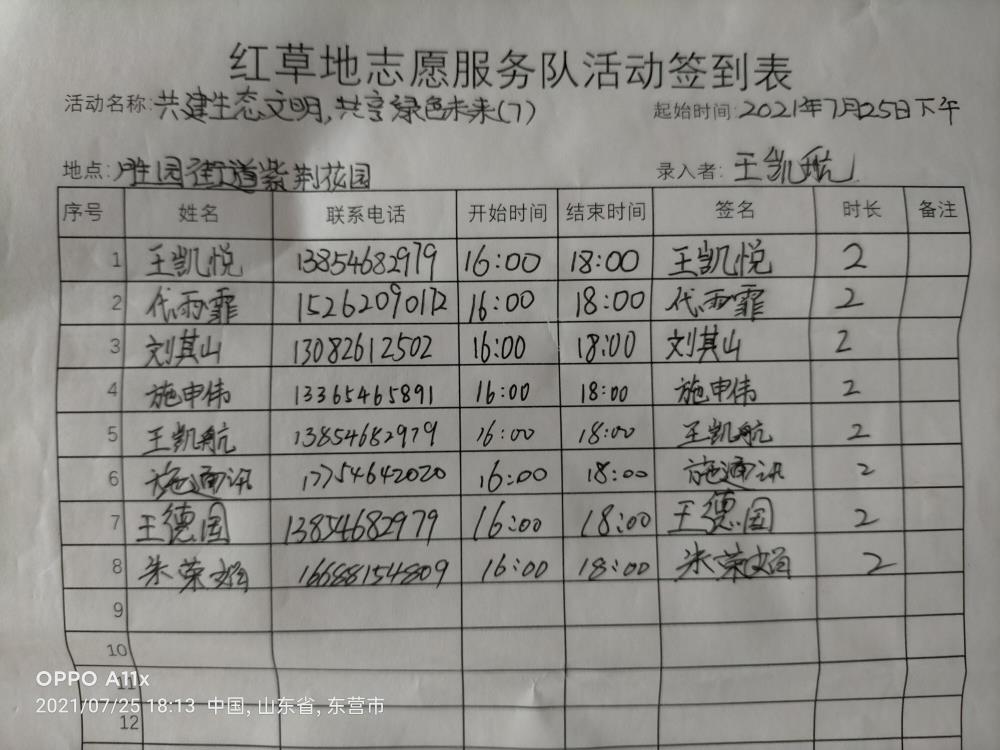 红草地志愿服务队活动签到表
活动名称:共建生态文明,共享绿色未来(7) 起始时间:2021年7月25日下午
地点:胜园街道紫荆花园 录入者:王凯航
序号 姓名 联系电话 开始时间 结束时间 签名 时长 备注
1 王凯悦 13854682979 16:00 18:00 王凯悦 2
2 代雨霏 15262090172 16:00 18:00 代雨霏 2
3 刘其山 13082612502 16:00 18:00 刘其山 2
4 施申伟 13365465891 16:00 18:00 施申伟 2
5 王凯航 13854682979 16:00 18:00 王凯航 2
6 施通讯 17754642020 16:00 18:00 施通讯 2
7 王德国 13854682979 16:00 18:00 王德国 2
8 朱荣娟 16688154809 16:00 18:00 朱荣娟 2
9
10
11
12
OPPO A11x
2021/07/25 18:13 中国, 山东省, 东营市